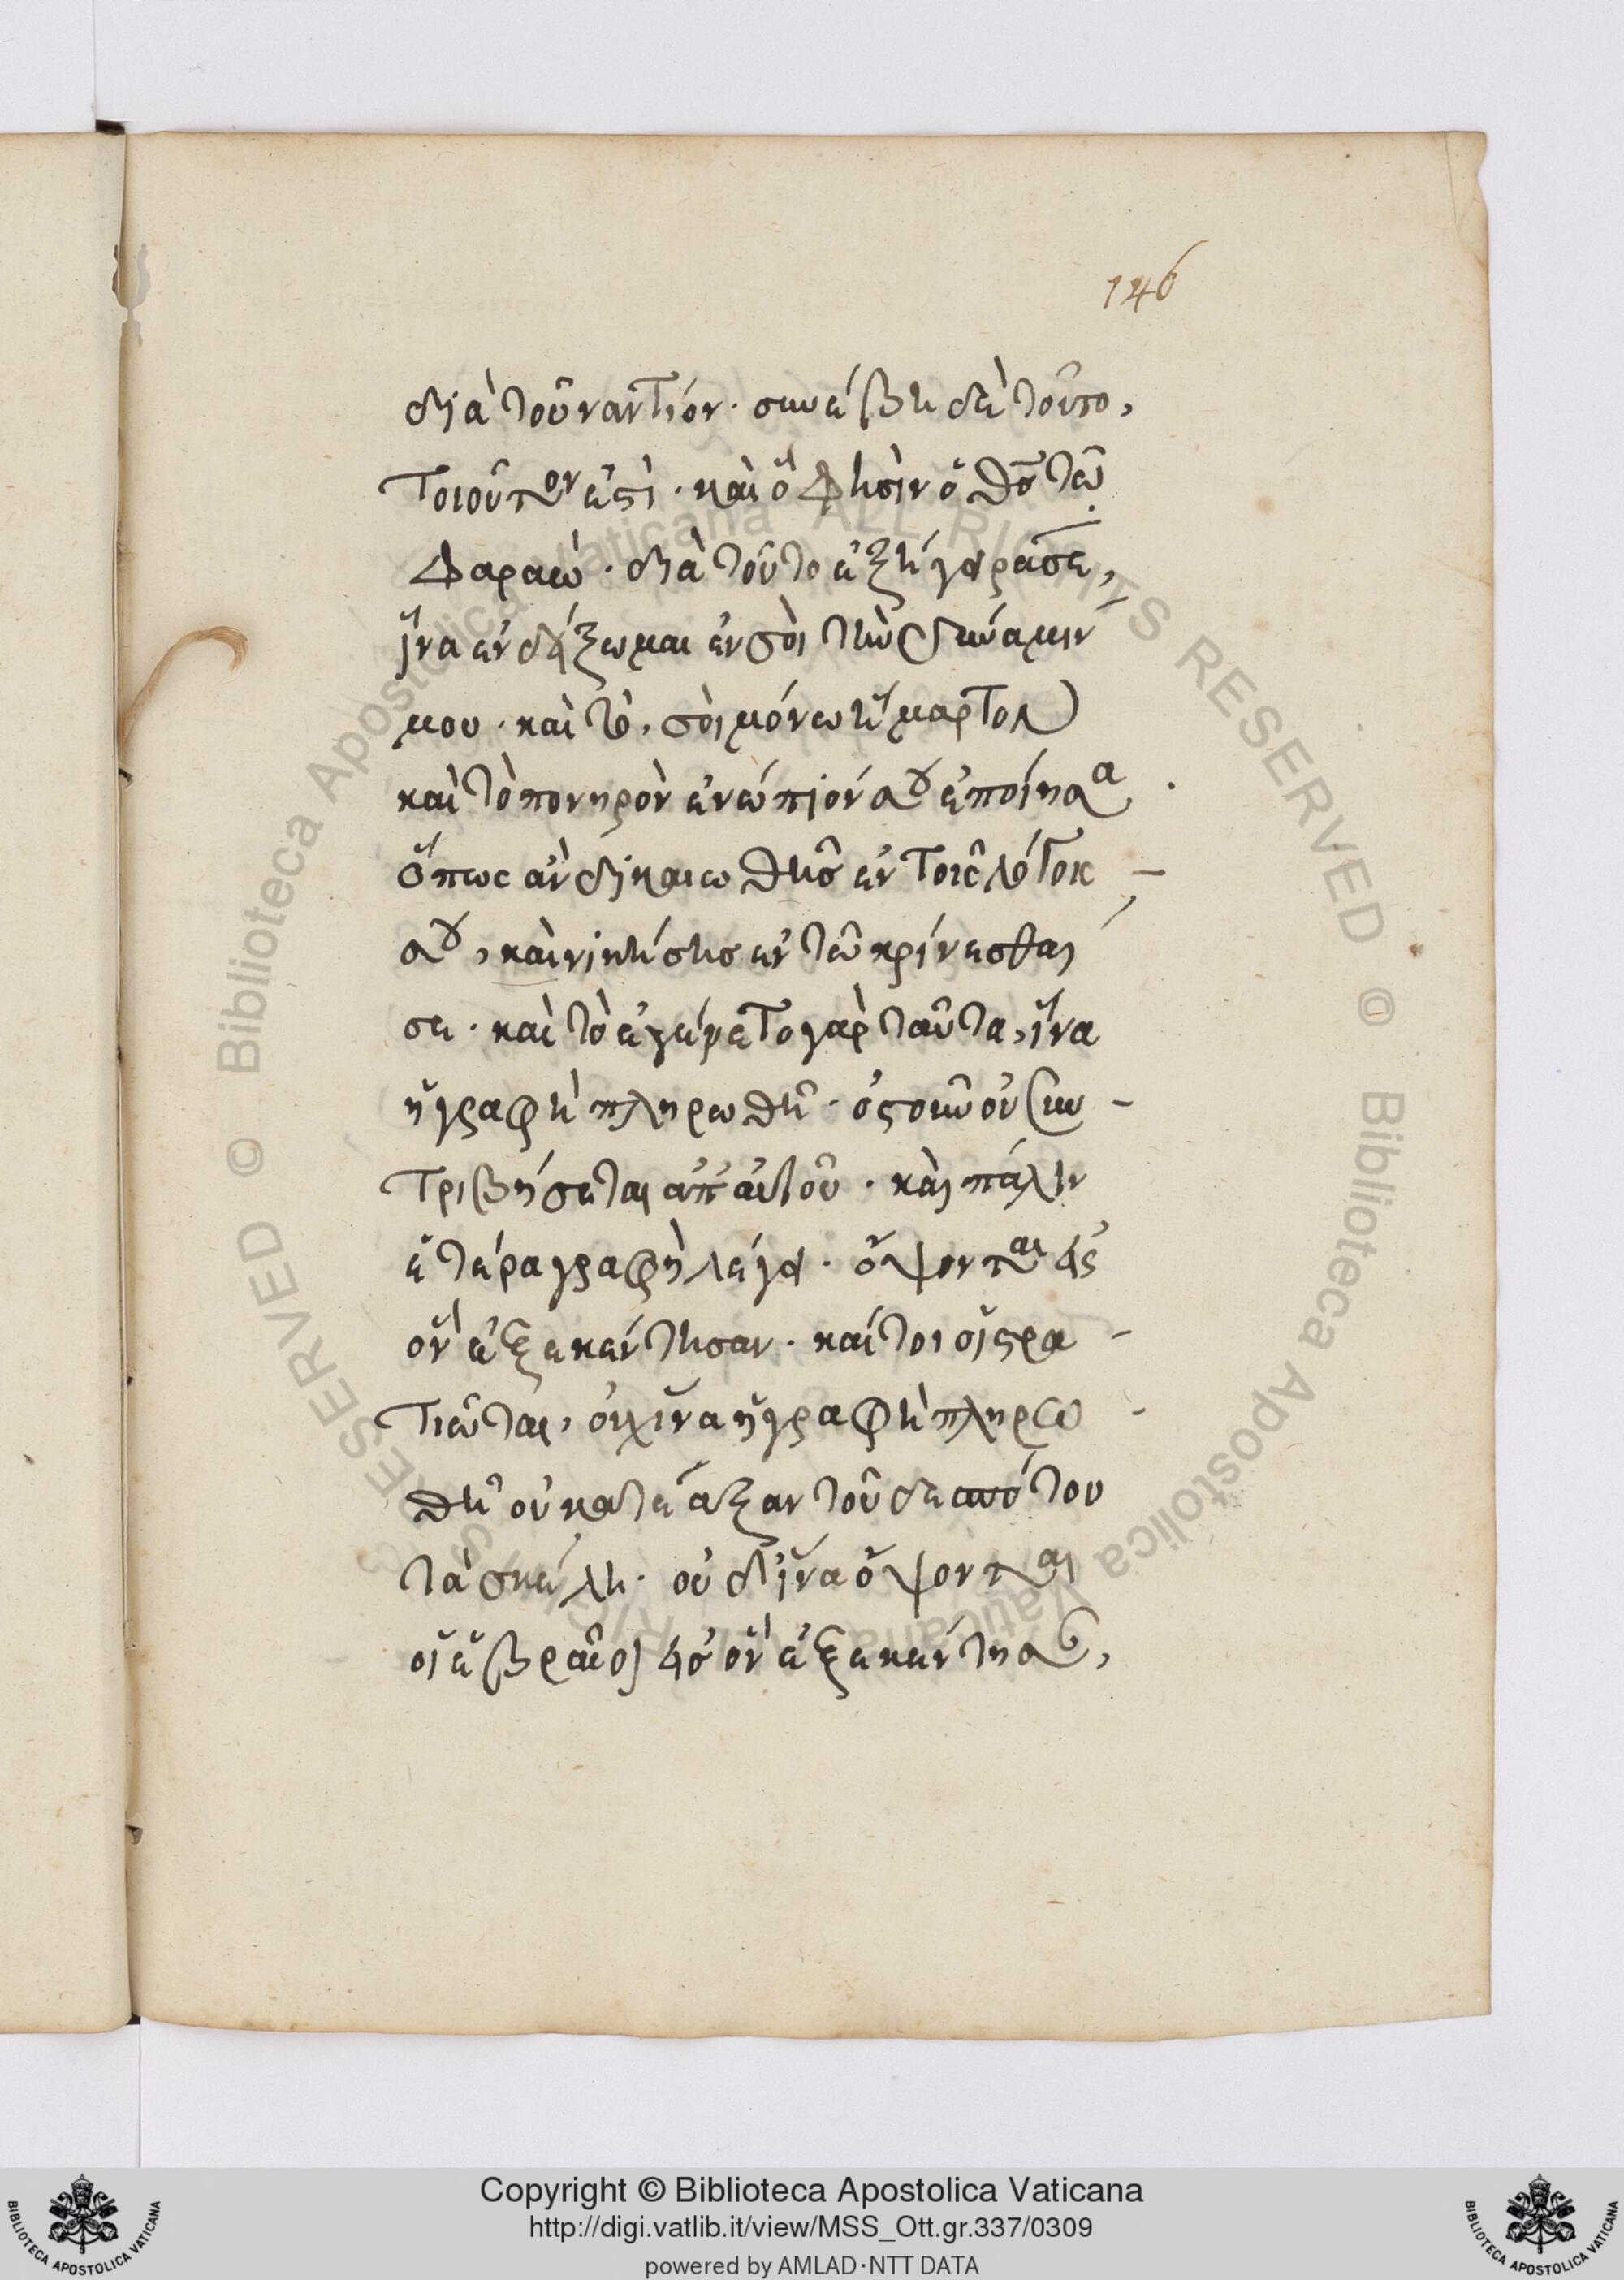 146
διὰ τοῦναντίον· συνέβη δὲ τοῦτο,
τοιοῦτον ἐστὶ· καὶ ὅ φησὶν ὁ θσ τῶ
Φαραώ· διὰ τοῦτο ἐξήγειρά σε,
ἵνα ἐνδείξωμαι ἐν σοὶ τὴν δύναμιν
μου· καὶ τὸ, σοὶ μόνω ἥμαρτον
καὶ τὸ πονηρὸν ἐνώπιόν σου ἐποίησα
ὅπως ἂν δικαιωθῆσ ἐν τοῖς λόγοις
σου, καὶ νικήσησ ἐν τῶ κρίνεσθαι
σε· καὶ τὸ ἐγένετο γὰρ ταῦτα, ἵνα
ἡ γραφὴ πληρωθῆ· ὀστοῦν οὐ συν-
τριβήσεται ἀπ' αὐτοῦ· καὶ πάλιν
ἑτέρα γραφὴ λέγει· ὄψονται εἰς
ὃν ἐξεκέντησαν· καίτοι οἱ στρα-
τιῶται, οὐχ ἵνα ἡ γραφὴ πληρω-
θῆ οὐ κατέαξαν τοῦ δεσπότου
τὰ σκέλη· οὐδ' ἵνα ὄψονται
οἱ ἑβραῖοι εἰσ ὃν ἐξεκέντησαν,
Copyright © Biblioteca Apostolica Vaticana
http://digi.vatlib.it/view/MSS_Ott.gr.337/0309
powered by AMLAD·NTT DATA
BIBLIOTECA APOSTOLICA VATICANA
BIBLIOTECA APOSTOLICA VATICANA
© Biblioteca Apostolica Vaticana ALL RIGHTS RESERVED
© Biblioteca Apostolica Vaticana ALL RIGHTS RESERVED